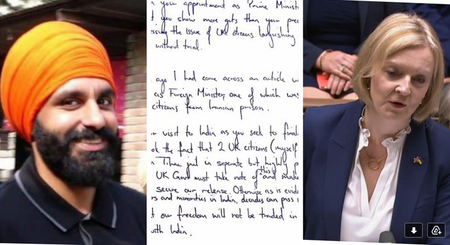 you appointment as Prime Minist
you show more guts than you
sing the issue of UK citizens languishing
without trial.
ago I had come across an article
as Foreign Minister, one of which was
citizens from Iranian prison.
visit to India as you seek to final
at the fact that 2 UK citizens (myself
jail in seperate but highly p
UK Govt must take note of this and
secure our release. Otherwise as is
rs and minorities in India, decades can pass
our freedom will not be traded in
with India.